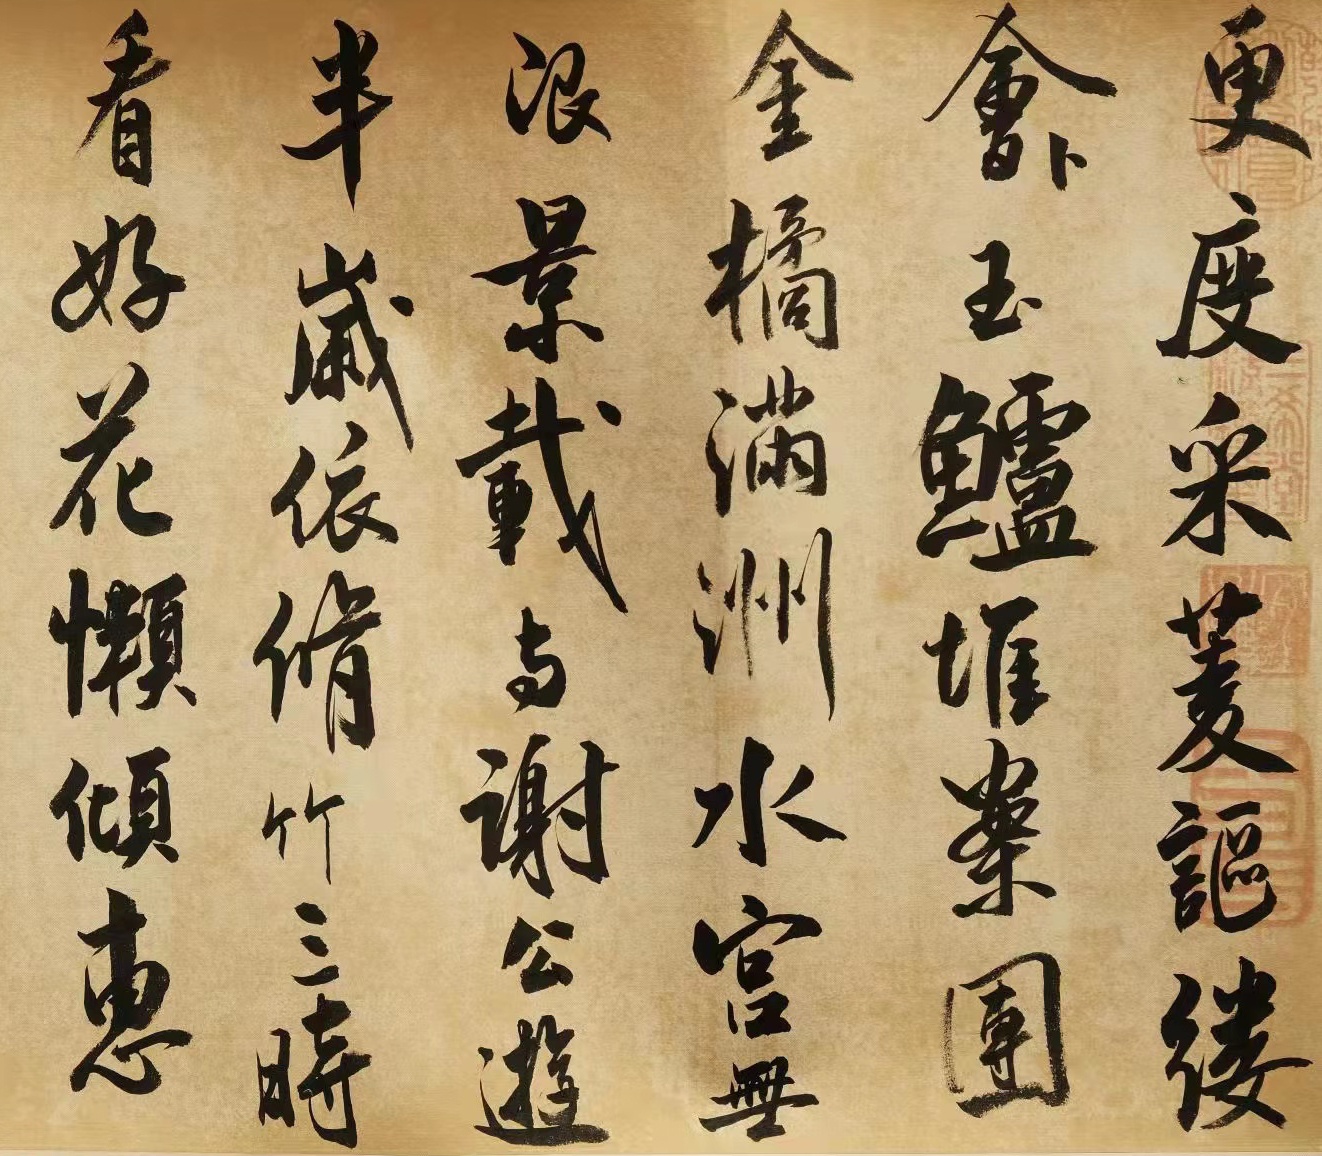 更度采菱謳縷
會玉鱸堆案團
金橘滿洲水宮無
限景載与謝公遊
半歲依脩竹三時
看好花懶傾惠